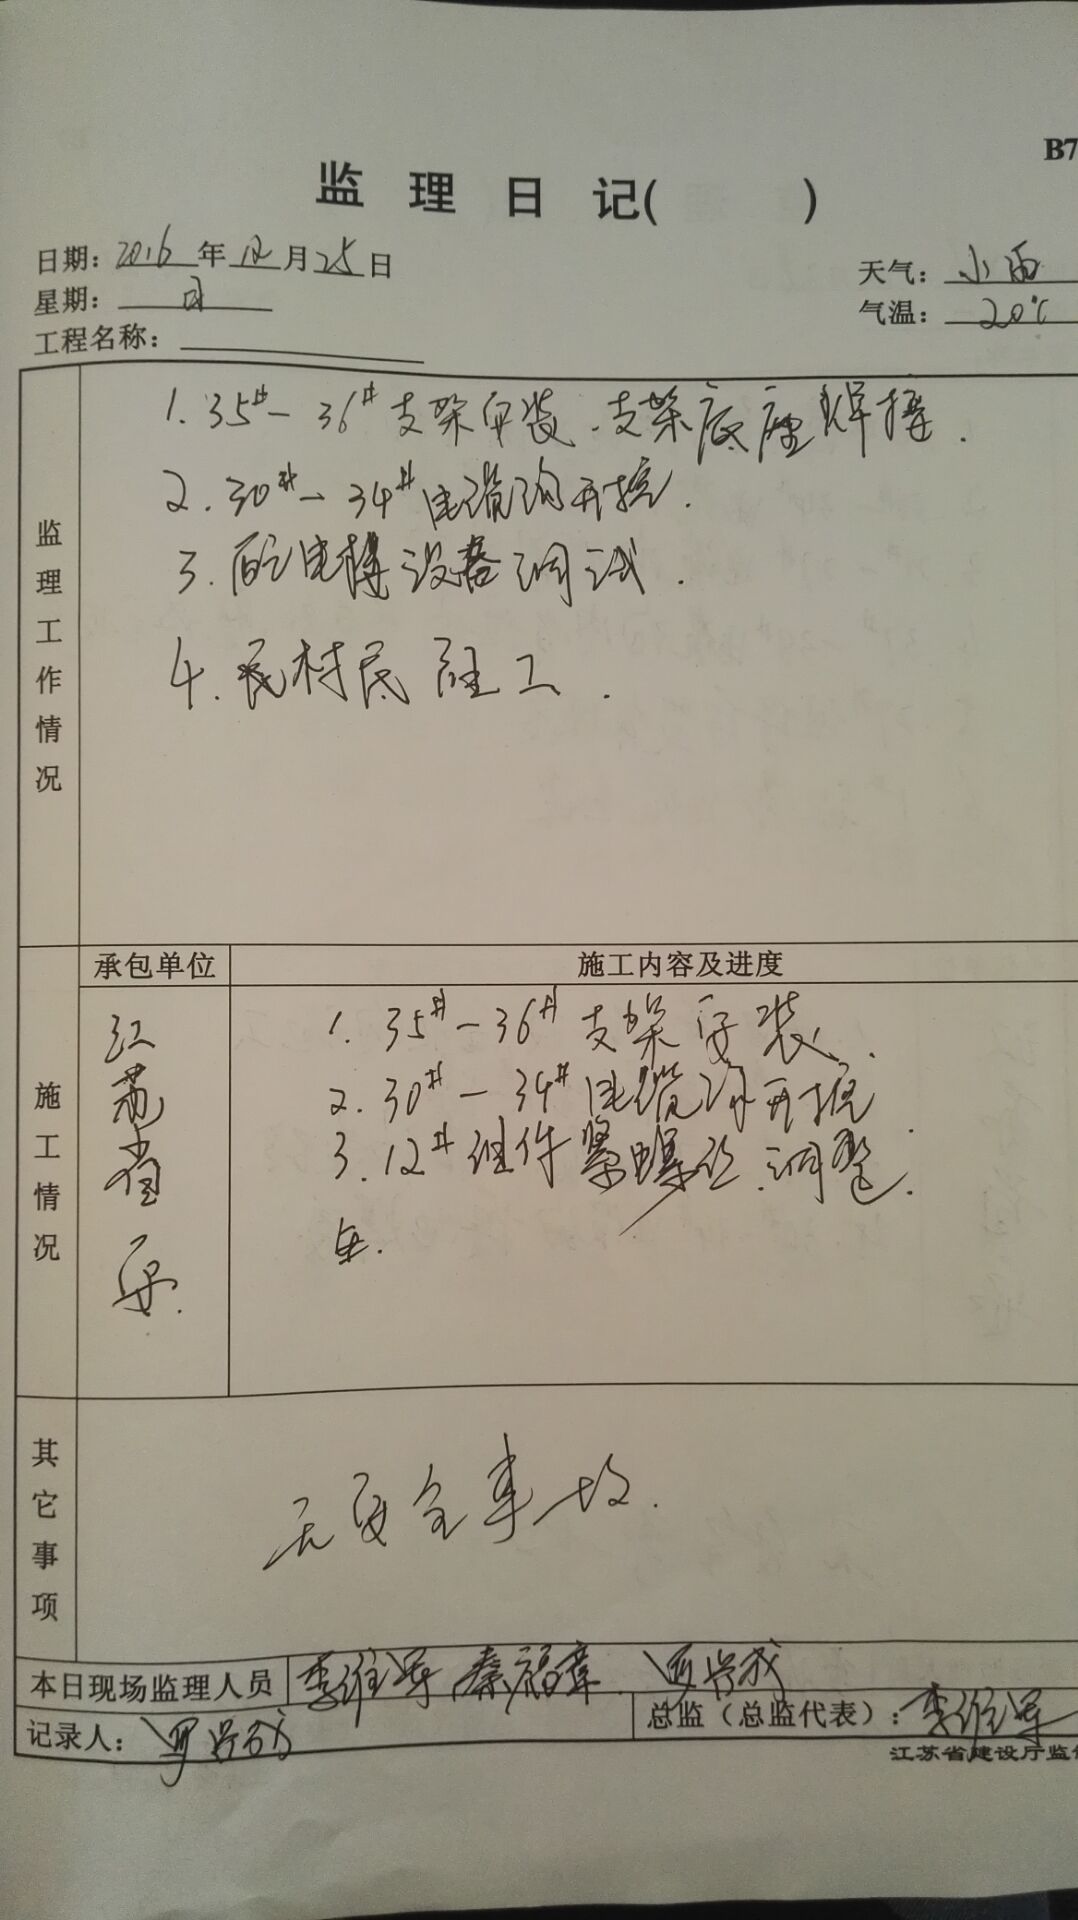 B7
监 理 日 记( )
日期: 2016 年 12 月 25 日
天气: 小雨
星期: 日
气温: 20℃
工程名称:
监理工作情况
1. 35#-36#支架安装.支架底座焊接.
2. 30#-34#电缆沟开挖.
3. 配电楼设备调试.
4. 村民 工.
施工情况
承包单位
施工内容及进度
江苏省安.
1. 35#-36#支架安装.
2. 30#-34#电缆沟开挖
3. 12#组件紧螺丝.调整.
其它事项
无安全事故.
本日现场监理人员 李维军 秦福章
记录人:
总监（总监代表）: 李维军
江苏省建设厅监